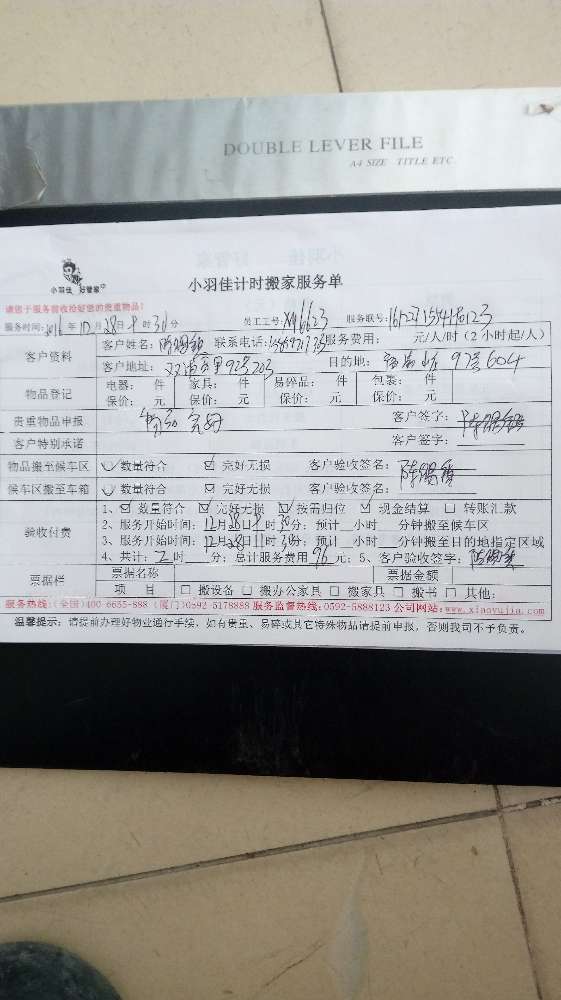 DOUBLE LEVER FILE
A4 SIZE TITLE ETC.
小羽佳 好管家
小羽佳计时搬家服务单
请您于服务前收拾好您的贵重物品！
服务时间：2016年12月28日9时30分 员工工号：XM6623 服务联号：
客户资料 客户姓名：陈 联系电话： 服务费用： 元/人/时（2小时起/人）
客户地址：203 目的地：97号604
物品登记 电器： 件 家具： 件 易碎品： 件 包装： 件
保价： 元 保价： 元 保价： 元 保价： 元
贵重物品申报 客户签字：陈
客户特别承诺 客户签字：
物品搬至候车区 数量符合 完好无损 客户验收签名：陈
候车区搬至车箱 数量符合 完好无损 客户验收签名：陈
验收付费 1、数量符合 完好无损 按需归位 现金结算 转账汇款
2、服务开始时间：12月28日9时30分；预计 小时 分钟搬至候车区
3、服务开始时间：12月28日11时30分；预计 小时 分钟搬至目的地指定区域
4、共计：2时 分；总计服务费用96元；5、客户验收签字：陈
票据栏 票据名称 票据金额
项 目 搬设备 搬办公家具 搬家具 搬书 其他：
服务热线：（全国）400-6655-888（厦门）0592-5178888 服务监督热线：0592-5888123 公司网站：www.xiaoyujia.com
温馨提示：请提前办理好物业通行手续，如有贵重、易碎或其它特殊物品请提前申报，否则我司不予负责。